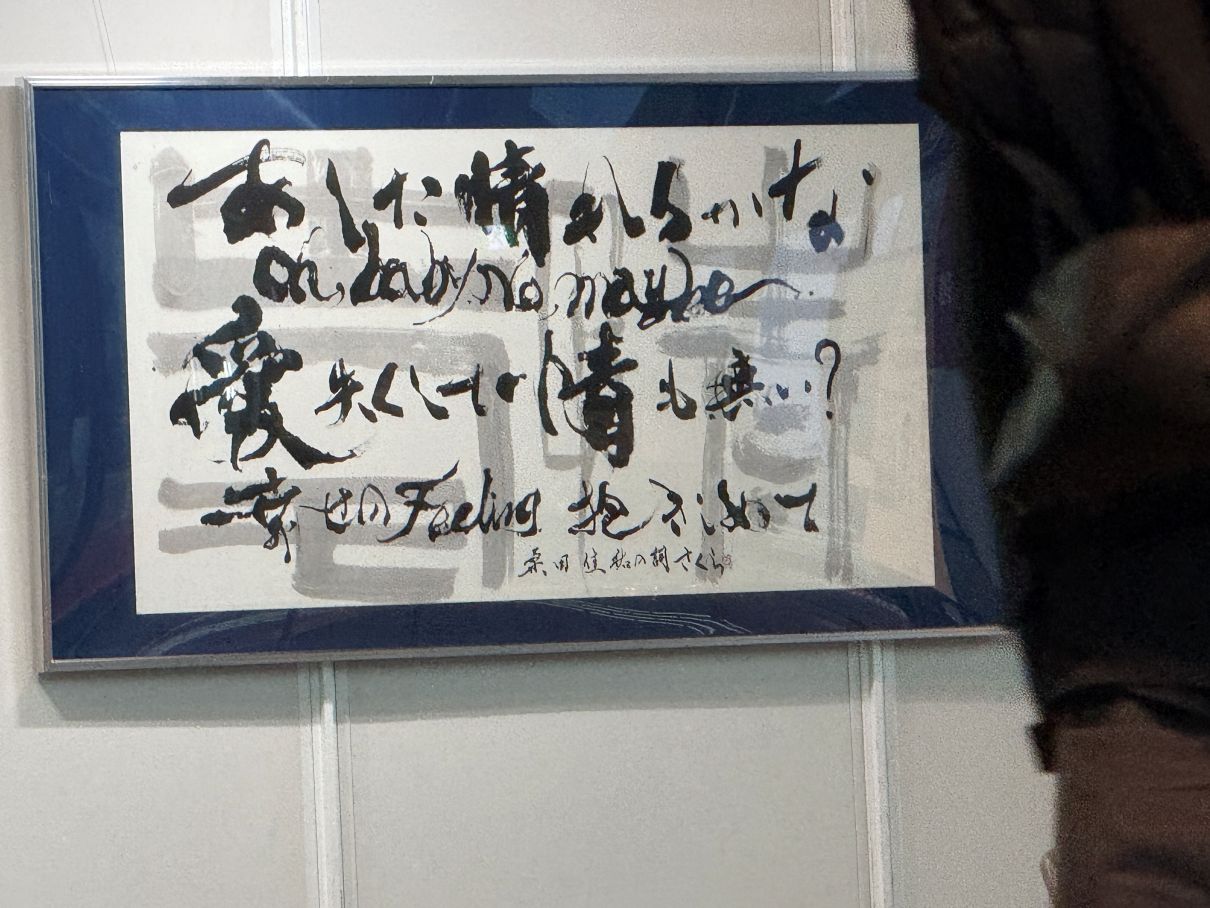 あした晴れるかな
oh, baby, no, maybe
愛失くして情も無い?
幸せのFeeling 抱きしめて
桑田佳祐の詞 さくら